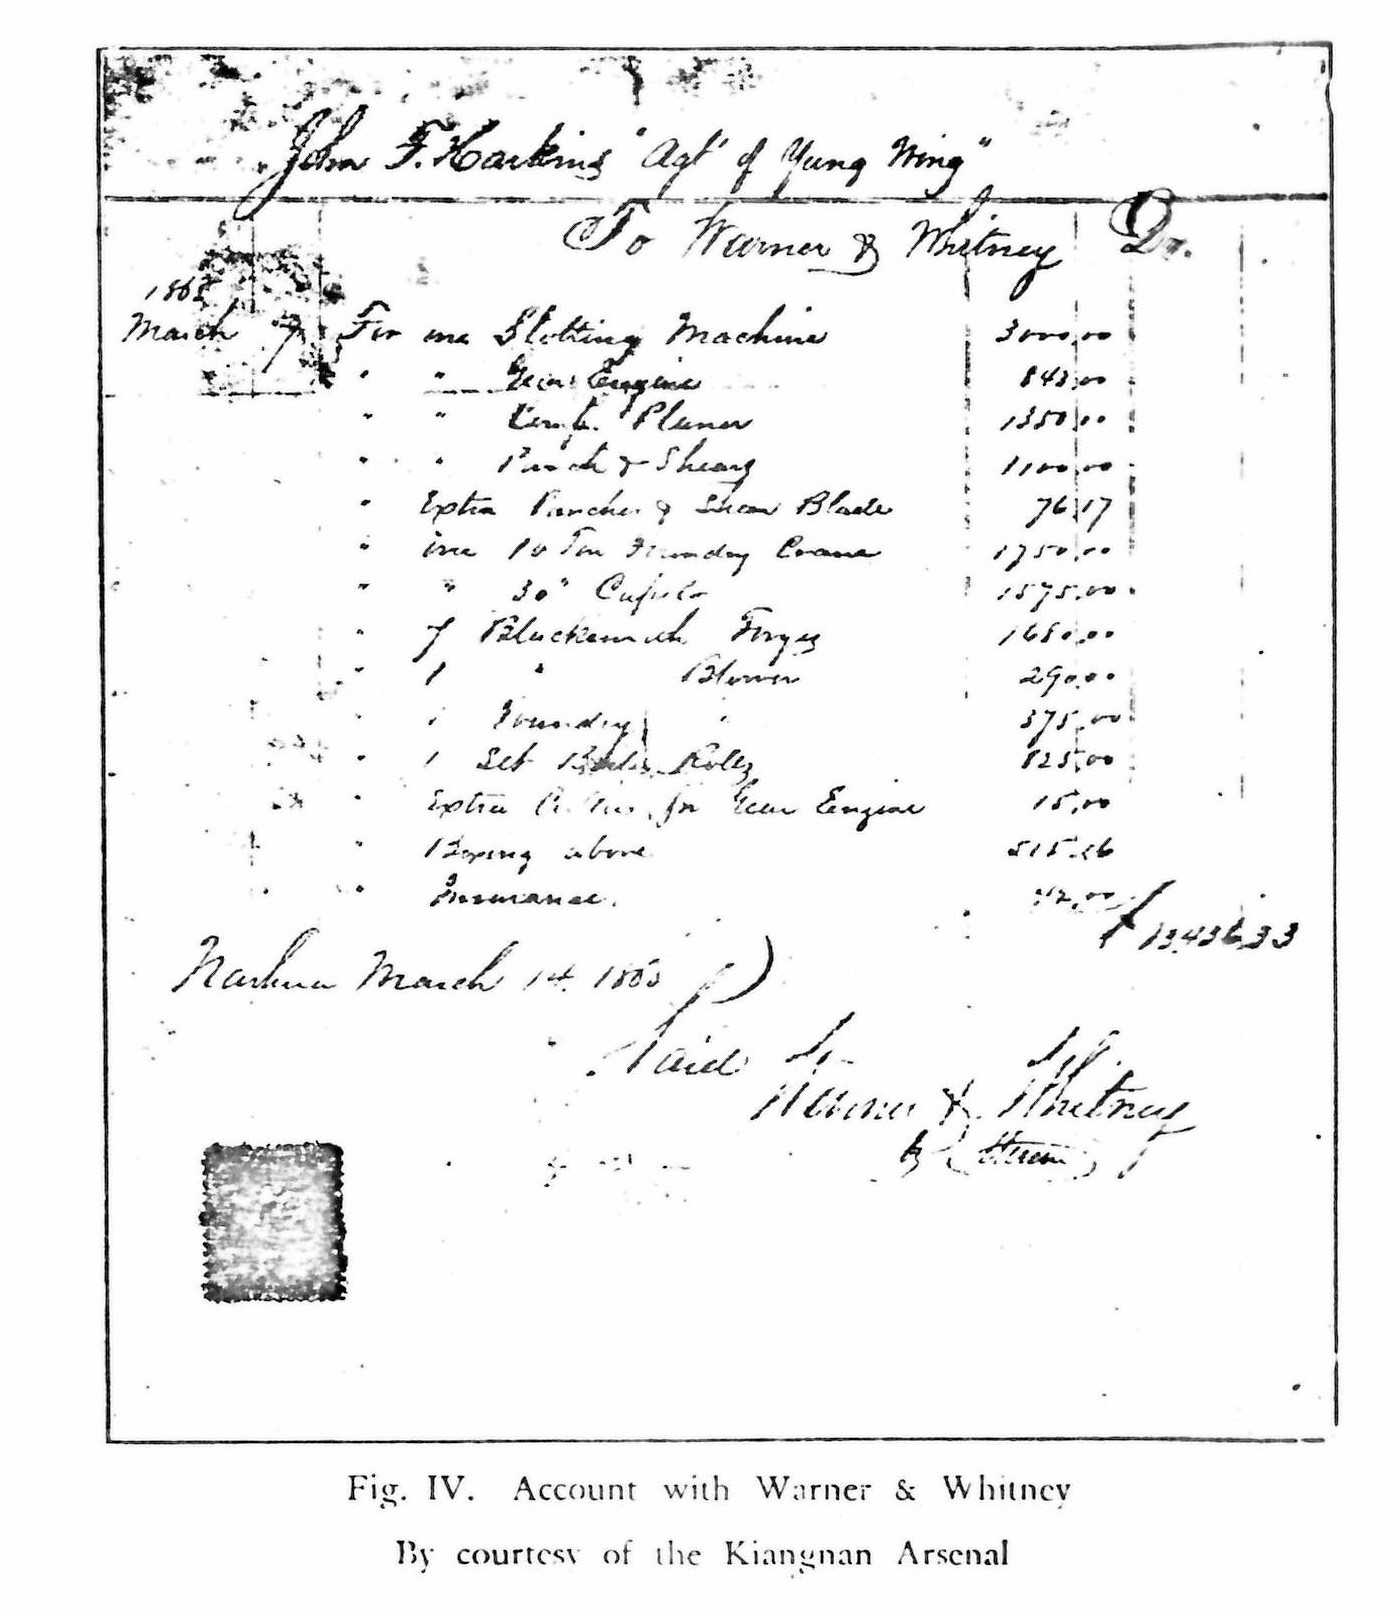 John F. Haskins "Agt" of Yung Wing"
To Warner & Whitney Dr.
1865
March 7 For one Slotting Machine 3000,00
" " Gear Engine 843,00
" " Planer 1350,00
" " Punch & Shears 1100,00
" Extra Punches & Shear Blade 76,17
" one 10 Ton Foundry Crane 1750,00
" " 30" Cupola 1575,00
" 7 Blacksmith Forges 1680,00
" 1 " Blower 290,00
" 1 Foundry " 375,00
" 1 Set Rolls 825,00
" Extra for Gear Engine 15,00
" Boxing above 515.16
" " Insurance. 42,00 $13,436.33
Nashua March 14. 1865
Paid
Warner & Whitney
by
Fig. IV. Account with Warner & Whitney
By courtesy of the Kiangnan Arsenal